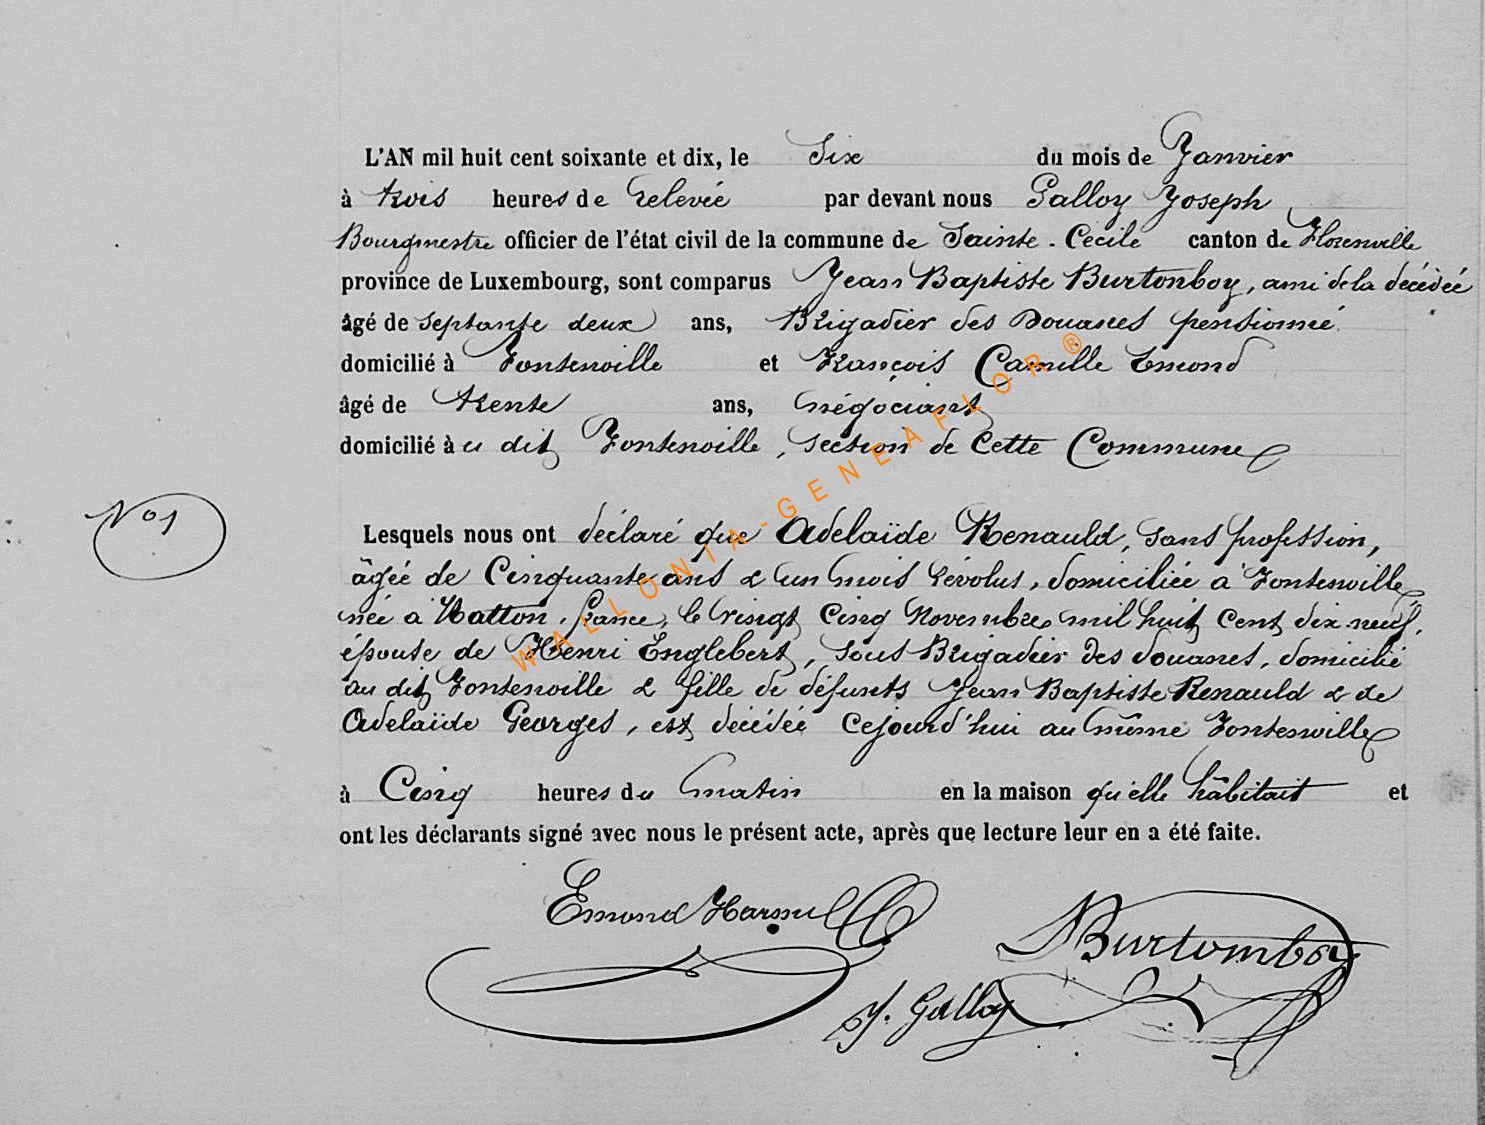 L'AN mil huit cent soixante et dix, le Six du mois de Janvier
à trois heures de relevée par devant nous Galloy Joseph
Bourgmestre officier de l'état civil de la commune de Sainte-Cécile canton de Florenville
province de Luxembourg, sont comparus Jean Baptiste Burtonboy, ami de la décédée
âgé de septante deux ans, Brigadier des Douanes pensionné
domicilié à Fontenoille et François Camille Emond
âgé de trente ans, négociant
domicilié à u dit Fontenoille, section de cette Commune
N° 1
Lesquels nous ont déclaré que Adelaïde Renauld, sans profession,
âgée de Cinquante ans & un mois révolus, domiciliée à Fontenoille,
née à Matton, france, le vingt cinq Novembre mil huit cent dix neuf,
épouse de Henri Englebert, sous Brigadier des douanes, domicilié
au dit Fontenoille & fille de défunts Jean Baptiste Renauld & de
Adelaïde Georges, est décédée cejourd'hui au même Fontenoille
à Cinq heures du matin en la maison qu'elle hâbitait et
ont les déclarants signé avec nous le présent acte, après que lecture leur en a été faite.
Emond
Burtomboy
J. Galloy
WALLONIA-GENEAFLOR ®